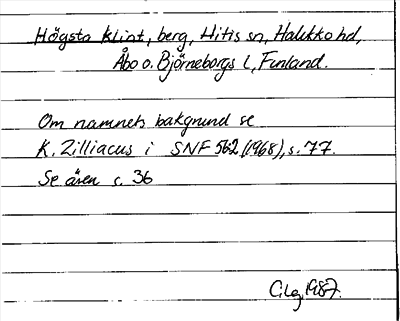 Högsta Klint, berg, Hitis sn, Halikko hd,
Åbo o. Björneborgs l, Finland.
Om namnets bakgrund se
K. Zilliacus i SNF 562 (1968), s. 77.
Se även s. 36
1987.